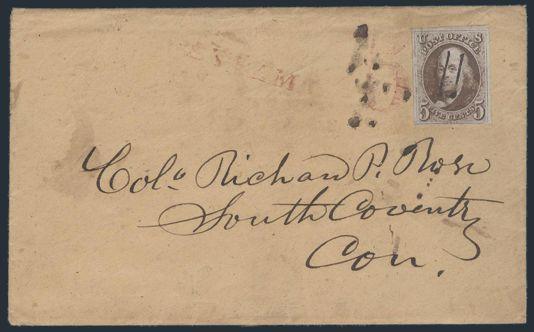 U S
POST OFFICE
5 FIVE CENTS 5
STEAM
Colo Richard P. Rose
South Coventry
Con.